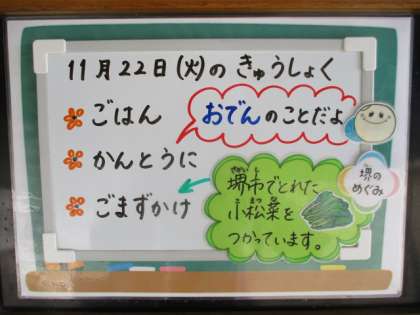 11月22日(火)の きゅうしょく
ごはん
おでんのことだよ
かんとうに
ごまずかけ
堺市でとれた
小松菜を
つかっています。
堺の
めぐみ